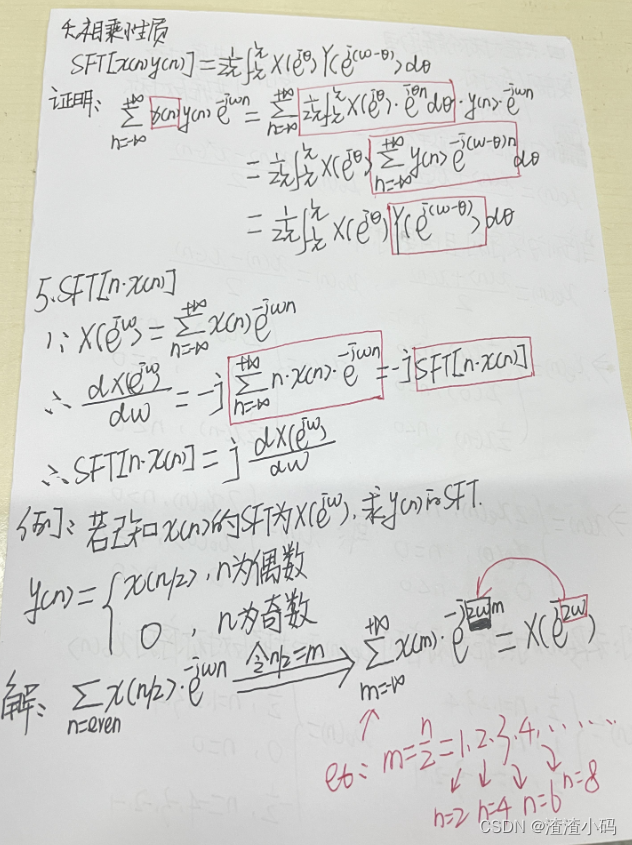 4.相乘性质
SFT[x(n)y(n)] = 1/2π ∫_{-π}^{π} X(e^{jθ}) Y(e^{j(w-θ)}) dθ
证明: ∑_{n=-∞}^{+∞} x(n) y(n) e^{-jwn} = ∑_{n=-∞}^{+∞} 1/2π ∫_{-π}^{π} X(e^{jθ})·e^{jθn} dθ · y(n)·e^{-jwn}
= 1/2π ∫_{-π}^{π} X(e^{jθ}) ∑_{n=-∞}^{+∞} y(n) e^{-j(w-θ)n} dθ
= 1/2π ∫_{-π}^{π} X(e^{jθ}) Y(e^{j(w-θ)}) dθ
5.SFT[n·x(n)]
∵ X(e^{jw}) = ∑_{n=-∞}^{+∞} x(n) e^{-jwn}
∴ dX(e^{jw})/dw = -j ∑_{n=-∞}^{+∞} n·x(n)·e^{-jwn} = -j SFT[n·x(n)]
∴ SFT[n·x(n)] = j dX(e^{jw})/dw
例: 若已知x(n)的SFT为X(e^{jw}), 求y(n)的SFT.
y(n) = { x(n/2), n为偶数
0, n为奇数
解: ∑_{n=even} x(n/2)·e^{-jwn} 令n/2=m ⟹ ∑_{m=-∞}^{+∞} x(m)·e^{-j2wm} = X(e^{j2w})
m = n/2 = 1, 2, 3, 4, ......
n=2 n=4 n=6 n=8
CSDN @渣渣小码